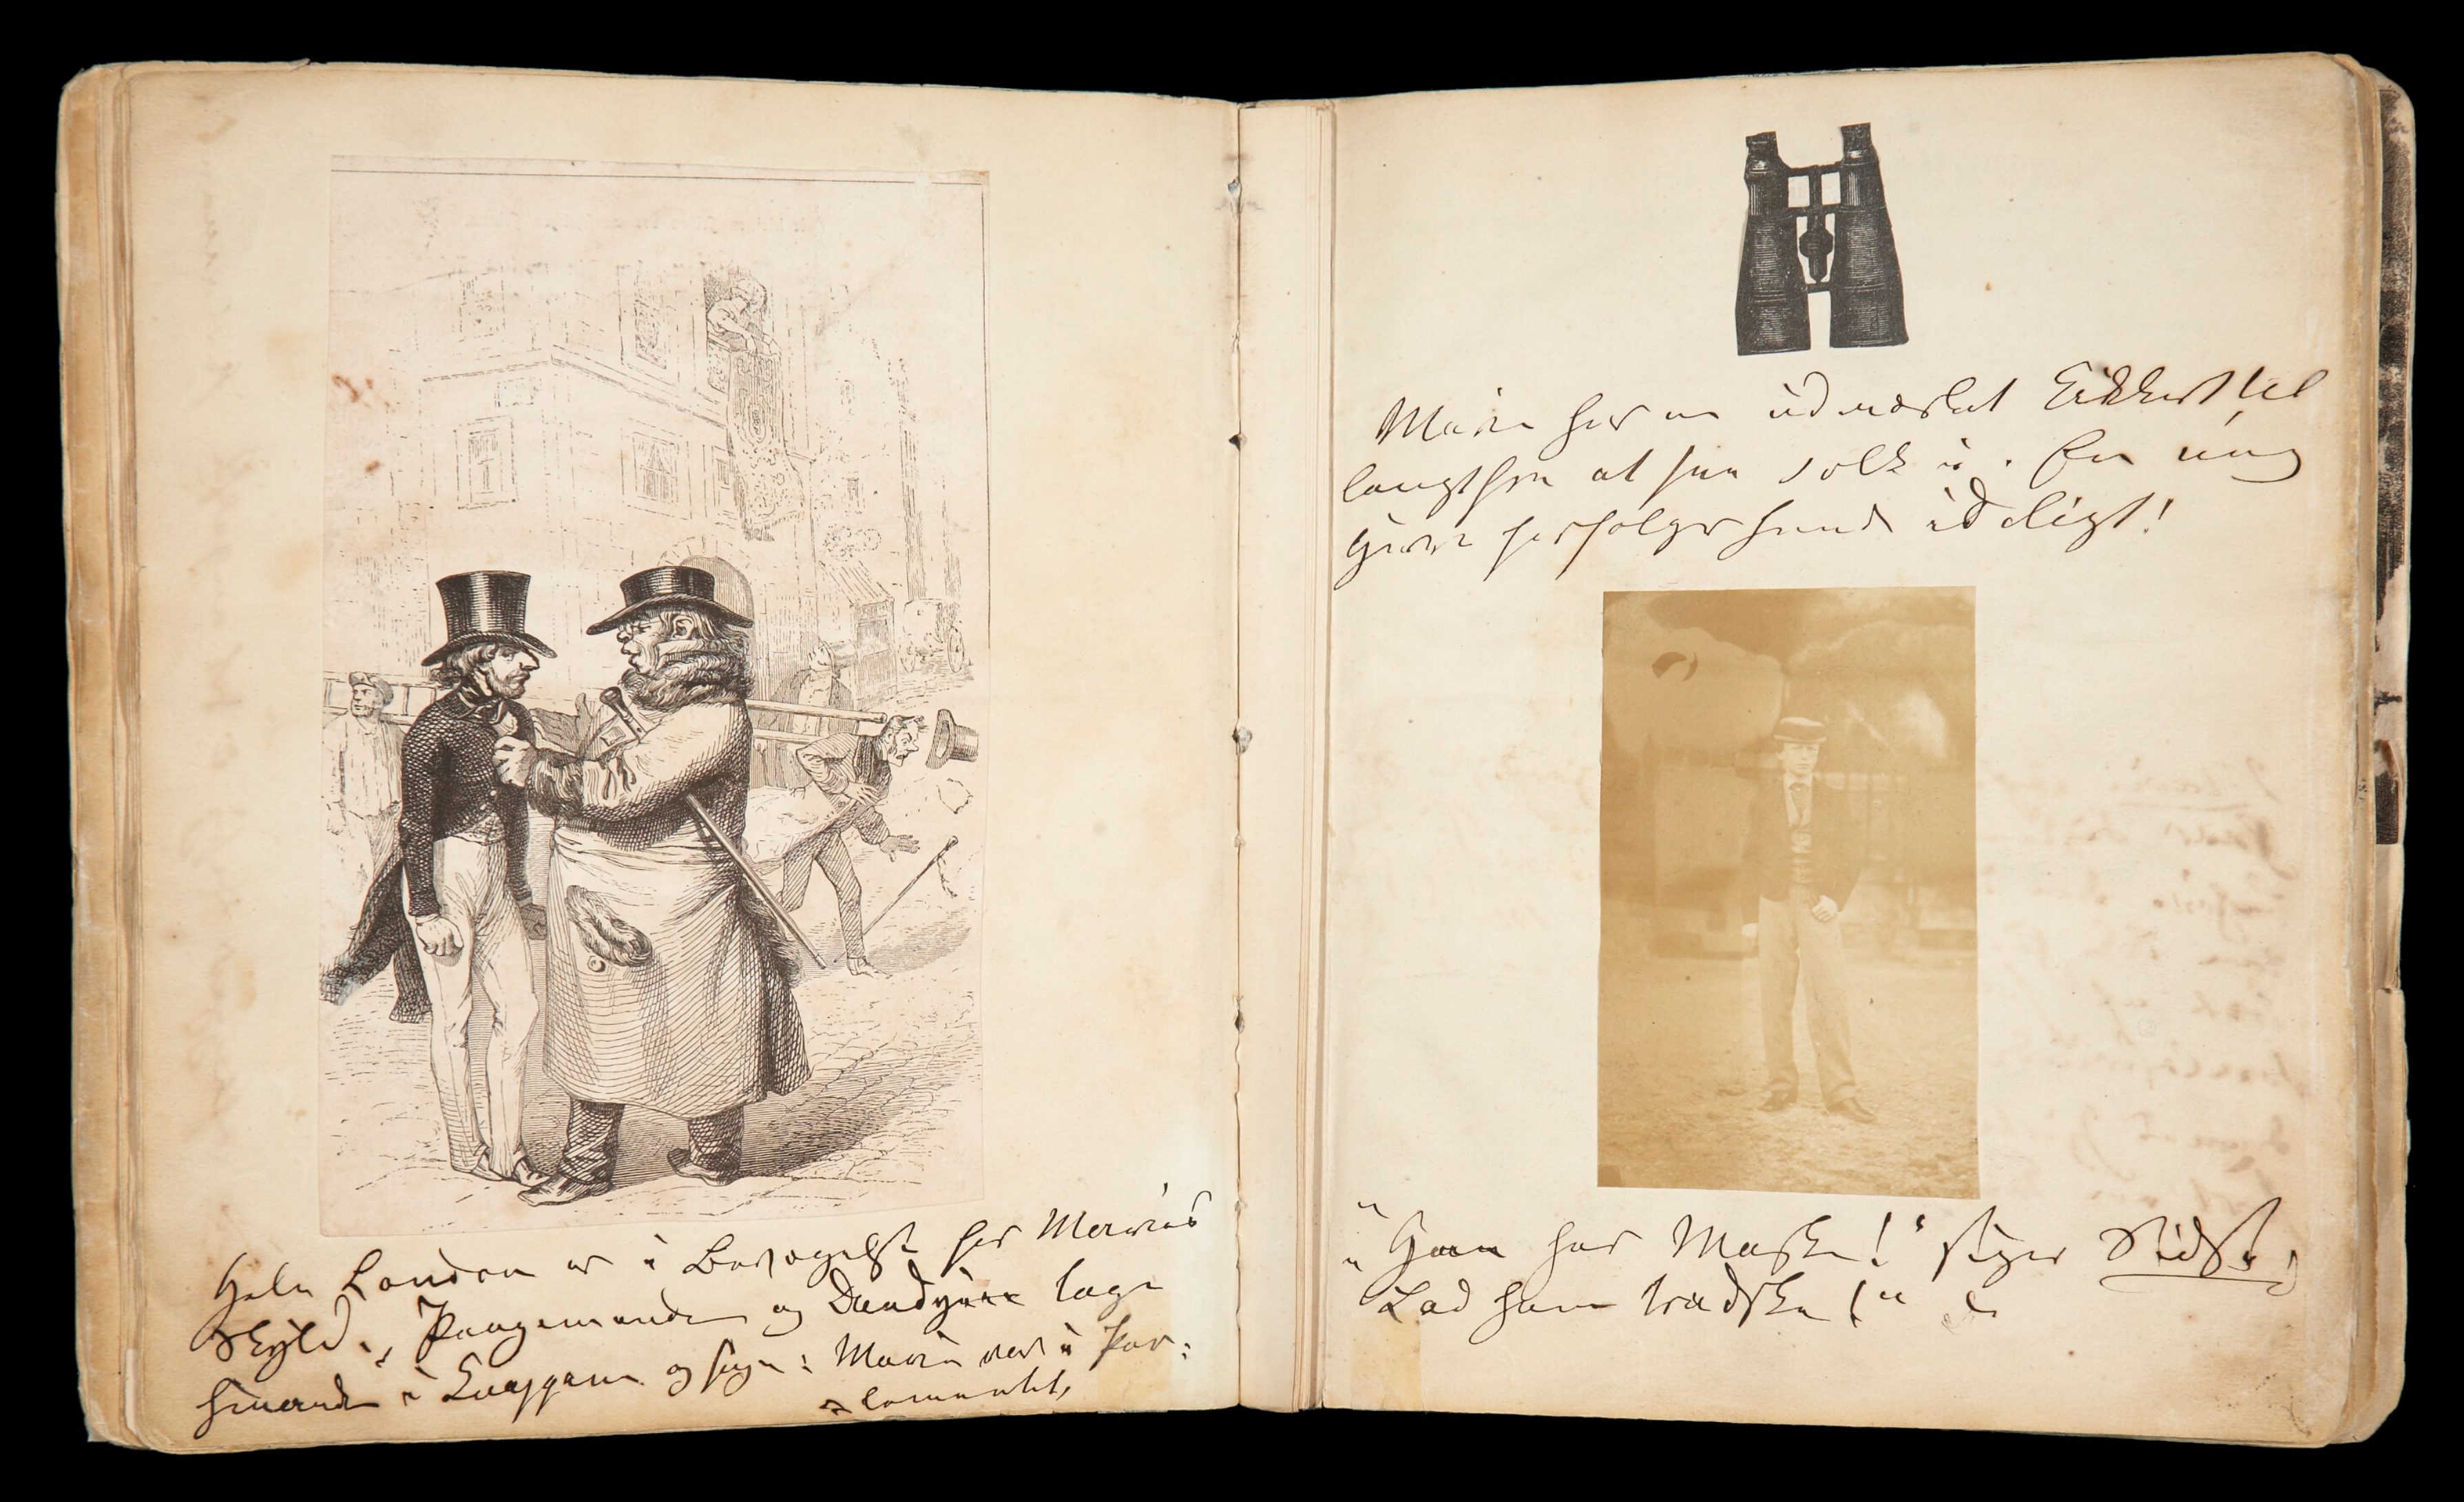 Hele London er i Bevægelse for Maries
Skyld. Pengemænder og Dandyerne tage
hinanden i Knappen og sige: Marie var i Par-
lamentet,
Marie har en udmærket Kikkert til
langtfra at see Folk i. En ung
Herre forfølger hende idelig!
"Han har Maske!" siger
"Lad ham tradske!"